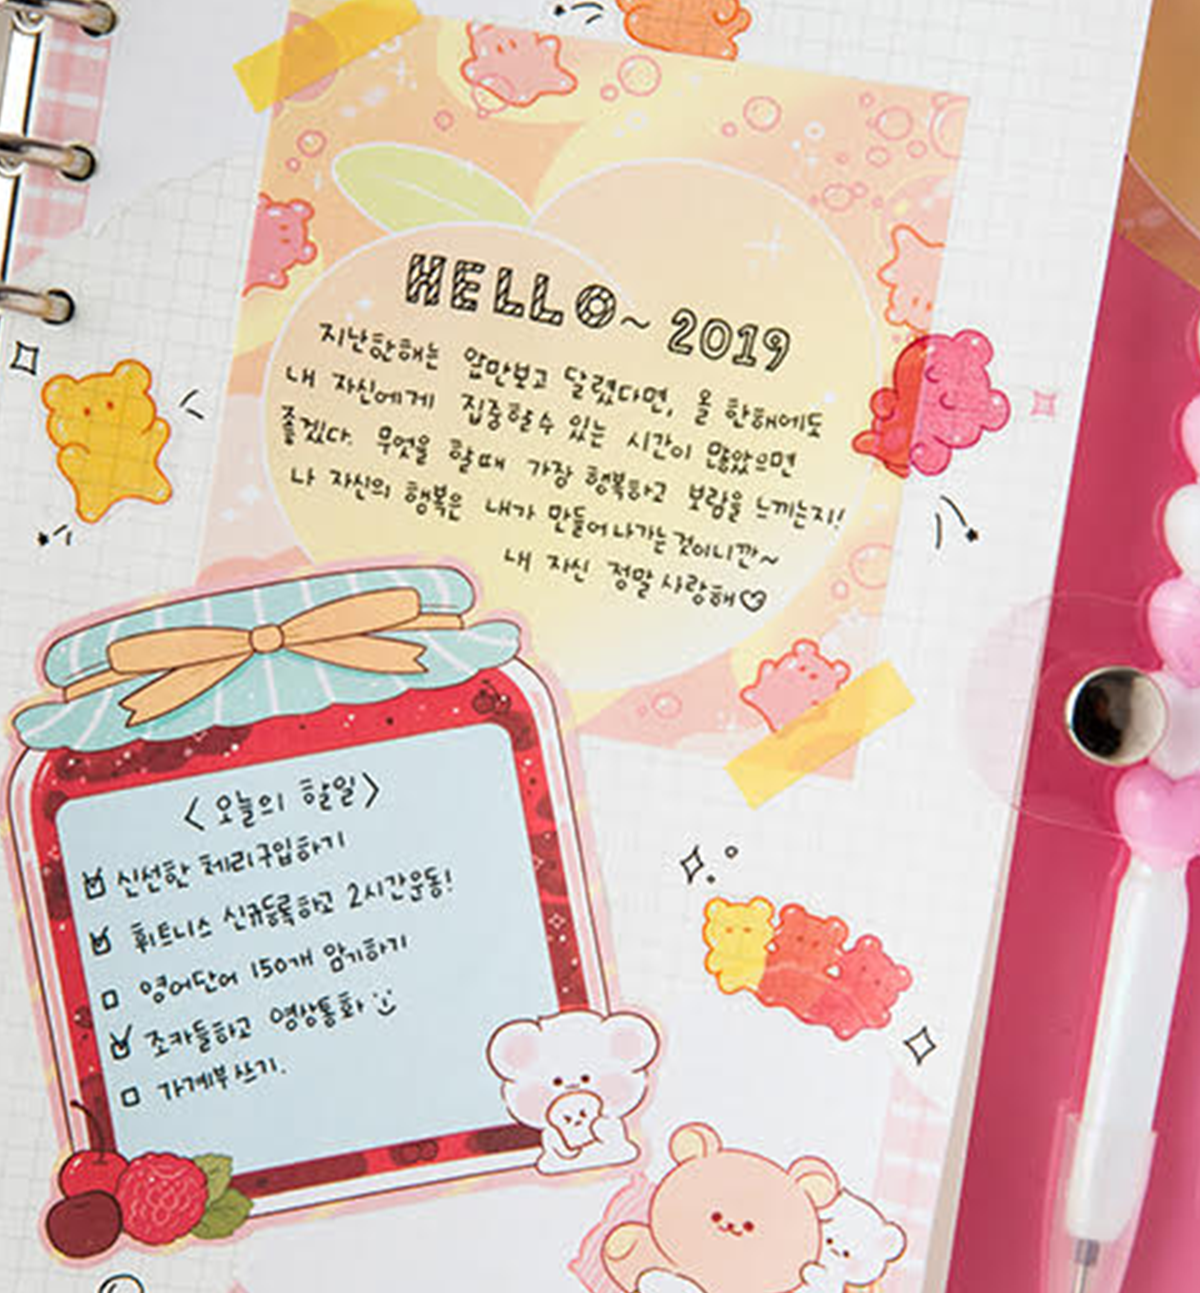 HELLO~ 2019
지난한해는 앞만보고 달렸다면, 올 한해에도
내 자신에게 집중할수 있는 시간이 많았으면
좋겠다. 무엇을 할때 가장 행복하고 보람을 느끼는지!
나 자신의 행복은 내가 만들어나가는것이니깐~
내 자신 정말 사랑해♡
<오늘의 할일>
☑ 신선한 체리구입하기
☑ 휘트니스 신규등록하고 2시간운동!
□ 영어단어 150개 암기하기
☑ 조카들하고 영상통화
□ 가계부 쓰기.